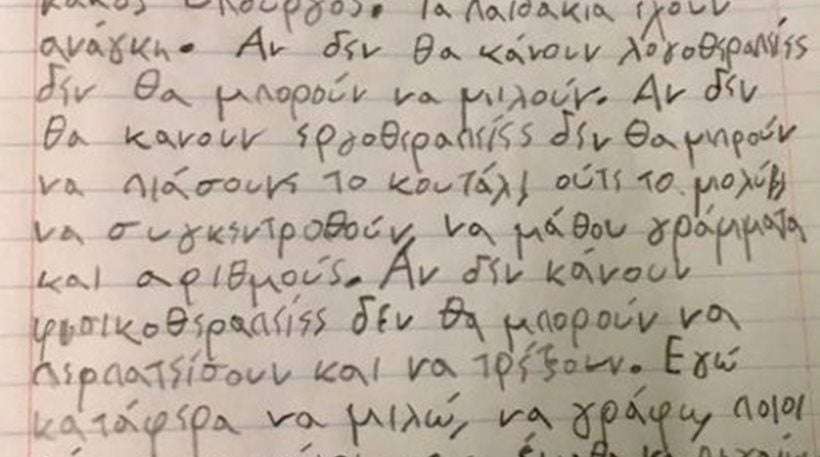 κακός υπουργός. Τα παιδάκια έχουν
ανάγκη. Αν δεν θα κάνουν λόγοθεραπείες
δεν θα μπορούν να μιλούν. Αν δεν
θα κανουν εργοθεραπείες δεν θα μπρούν
να πιάσουν το κουτάλι ούτε το μολύβι
να συγκεντροθούν, να μάθου γράμματα
και αριθμούς. Αν δεν κάνουν
φυσικοθεραπείες δεν θα μπορούν να
περπατείσουν και να τρέξουν. Εγώ
κατάφερα να μιλώ, να γράφω, ποιοι